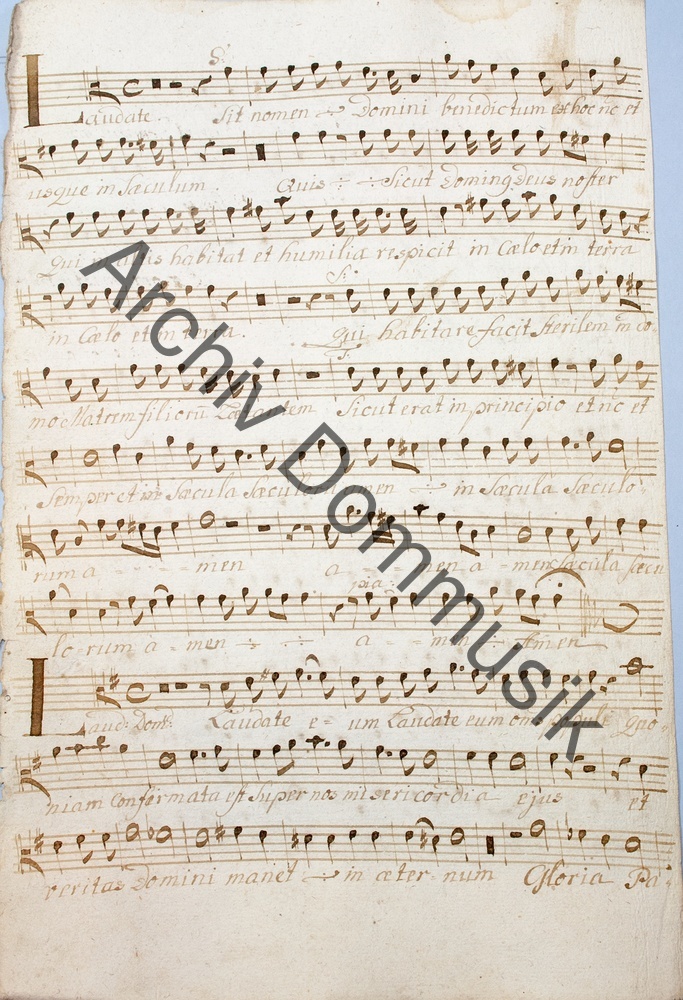 S.
Laudate. Sit nomen Domini benedictum ex hoc nc et
usque in Sæculum. Quis Sicut Dominq Deus noster
Qui in altis habitat et humilia respicit in Cælo et in terra
S.
in Cælo et in terra. Qui habitare facit Sterilem in do
S.
mo Matrem filiorū Lætantem Sicut erat in principio et nc et
Semper et in Sæcula Sæculorum amen in Sæcula Sæculo
rum a - - - - men a - men a - men Sæcula Sæcu
pia:
lo - rum a - men a - men Amen
Laud: Dom: Laudate e - um Laudate eum omnes populi quo -
niam Confirmata est Super nos misericordia ejus et
veritas Domini manet in æter - num Gloria Pa -
Archiv Dommusik